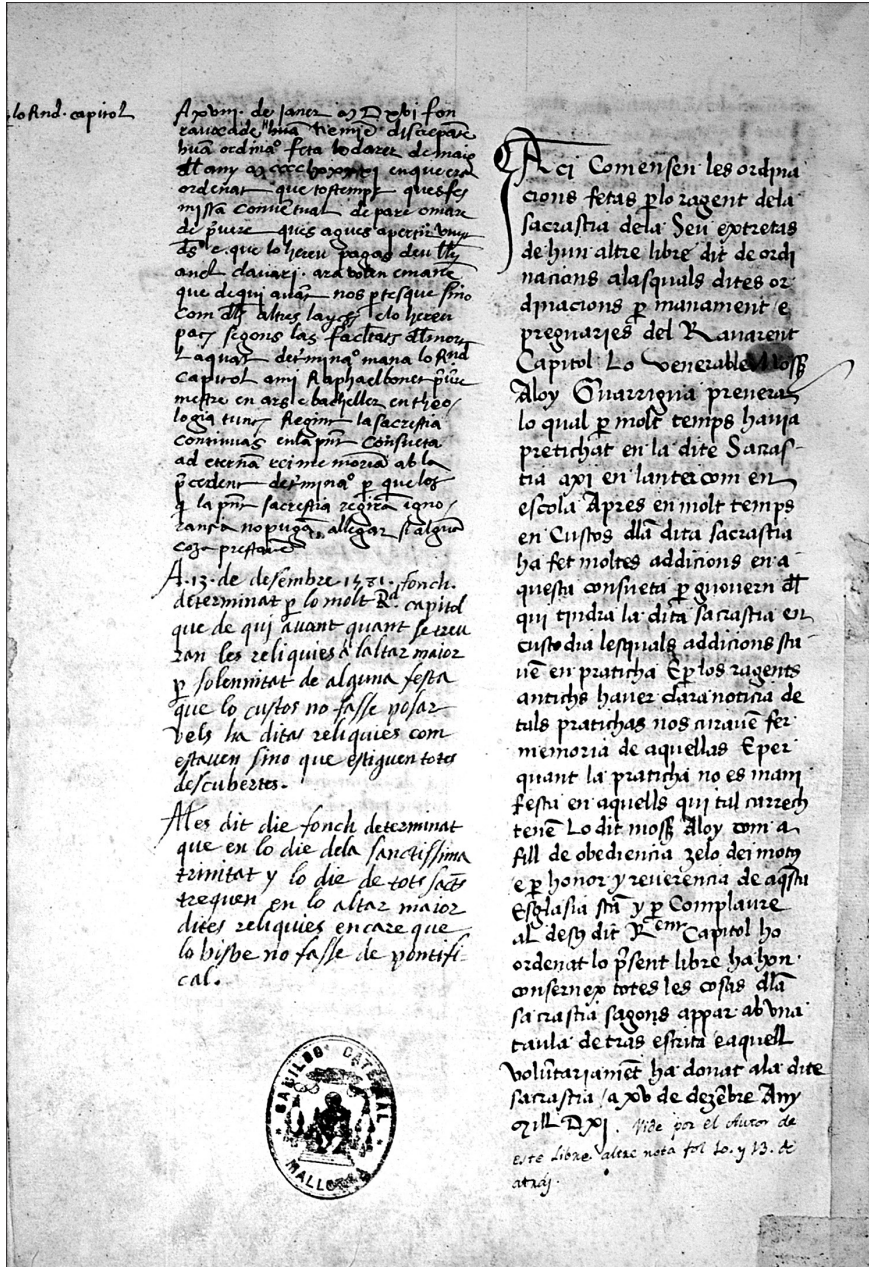 lo Rnd. capitol
A xviii. de Janer M D xvi fon
huā ordinao feta lo darer de maio
dll any en que era
ordenat que tostemps ques fes
missa conventual de pare o mare
de pūre ques agues a pertir
ds e. que lo hereu pagas deu
anel clavari. ara volen e mane
que de qui auāt nos ptesque sino
com dls altres layçs elo hereu
pac segons las facltats dll mort
Laqual determinao mana lo Rnd
Capitol a mi Raphael bonet pūre
mestre en ars e batheller en theo-
logia tunc Regint la sacrestia
continuas en la pnt Consueta
ad eternā rei memoriā ab la
pcedent determinao p que los
q la pnt sacrestia regirā igno-
ransia no pugā allegar si alguā
cosa prestauē
A. 13. de desembre 1581. fonch.
determinat p lo molt Rd. capitol
que de qui auant quant se treu
ran les reliquies a laltar maior
p solennitat de alguna festa
que lo custos no fasse posar
vels ha ditas reliquies com
estauen sino que estiguen totes
descubertes.
Mes dit die fonch determinat
que en lo die dela sanctissima
trinitat y lo die de tots sācts
trequen en lo altar maior
dites reliquies encare que
lo bisbe no fasse de pontifi-
cal.
Aci Comensen les ordina
cions fetas p lo ragent dela
sacrastia dela Seu extretas
de hun altre libre dit de ordi
nacions alasquals dites or
dinacions p manament e
preguaries del Rauarent
Capitol Lo venerable Moss
Aloy Guarrigua preuerat
lo qual p molt temps hauia
pretichat en la dite Sacras-
tia axi en lanter com en
escola Apres en molt temps
en Custos dla dita sacrastia
ha fet moltes addicions en a
questa consueta p guouern dll
qui tindra la dita sacrastia en
custodia lesquals addicions sta
uē en praticha E p los ragents
antichs hauer clara noticia de
tals pratichas nos curauē fer
memoria de aquellas E per
quant la praticha no es mani
festa en aquells qui tal carrech
tenē Lo dit moss Aloy com a
fill de obediencia zelo dei motus
e p honor y reuerencia de aqsta
Esglasia stā y p Complaure
al desus dit Rent Capitol ho
ordenat lo psent libre ha hon
consernex totes les cosas dla
sacrastia sagons appar ab vna
taula de tras escrita e aquell
voluntariamēt ha donat ala dite
sacrastia / a xv de dezēbre Any
Mill D xj. Vide por el Autor de
este libre altre nota fol 10. y 13. de
atras.
CABILDO CATEDRAL
MALLORCA